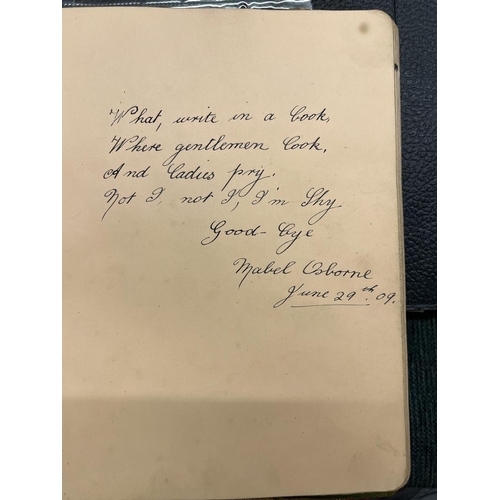 What, write in a book,
Where gentlemen look,
And ladies pry.
Not I, not I, I'm Shy
Good-bye
Mabel Osborne
June 29th. 09.